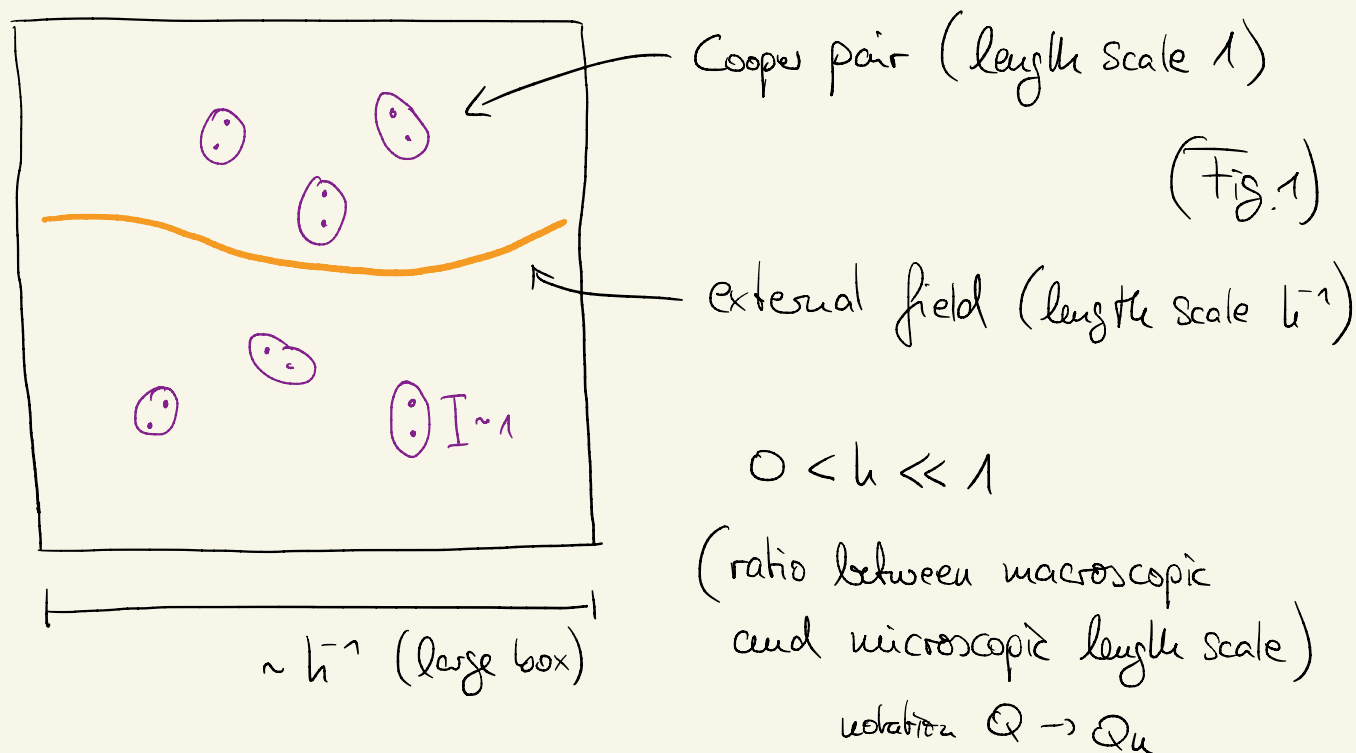 Cooper pair (length scale 1)
(Fig. 1)
external field (length scale h⁻¹)
I ~ 1
0 < h << 1
(ratio between macroscopic
and microscopic length scale)
~ h⁻¹ (large box)
notation Q → Qₕ